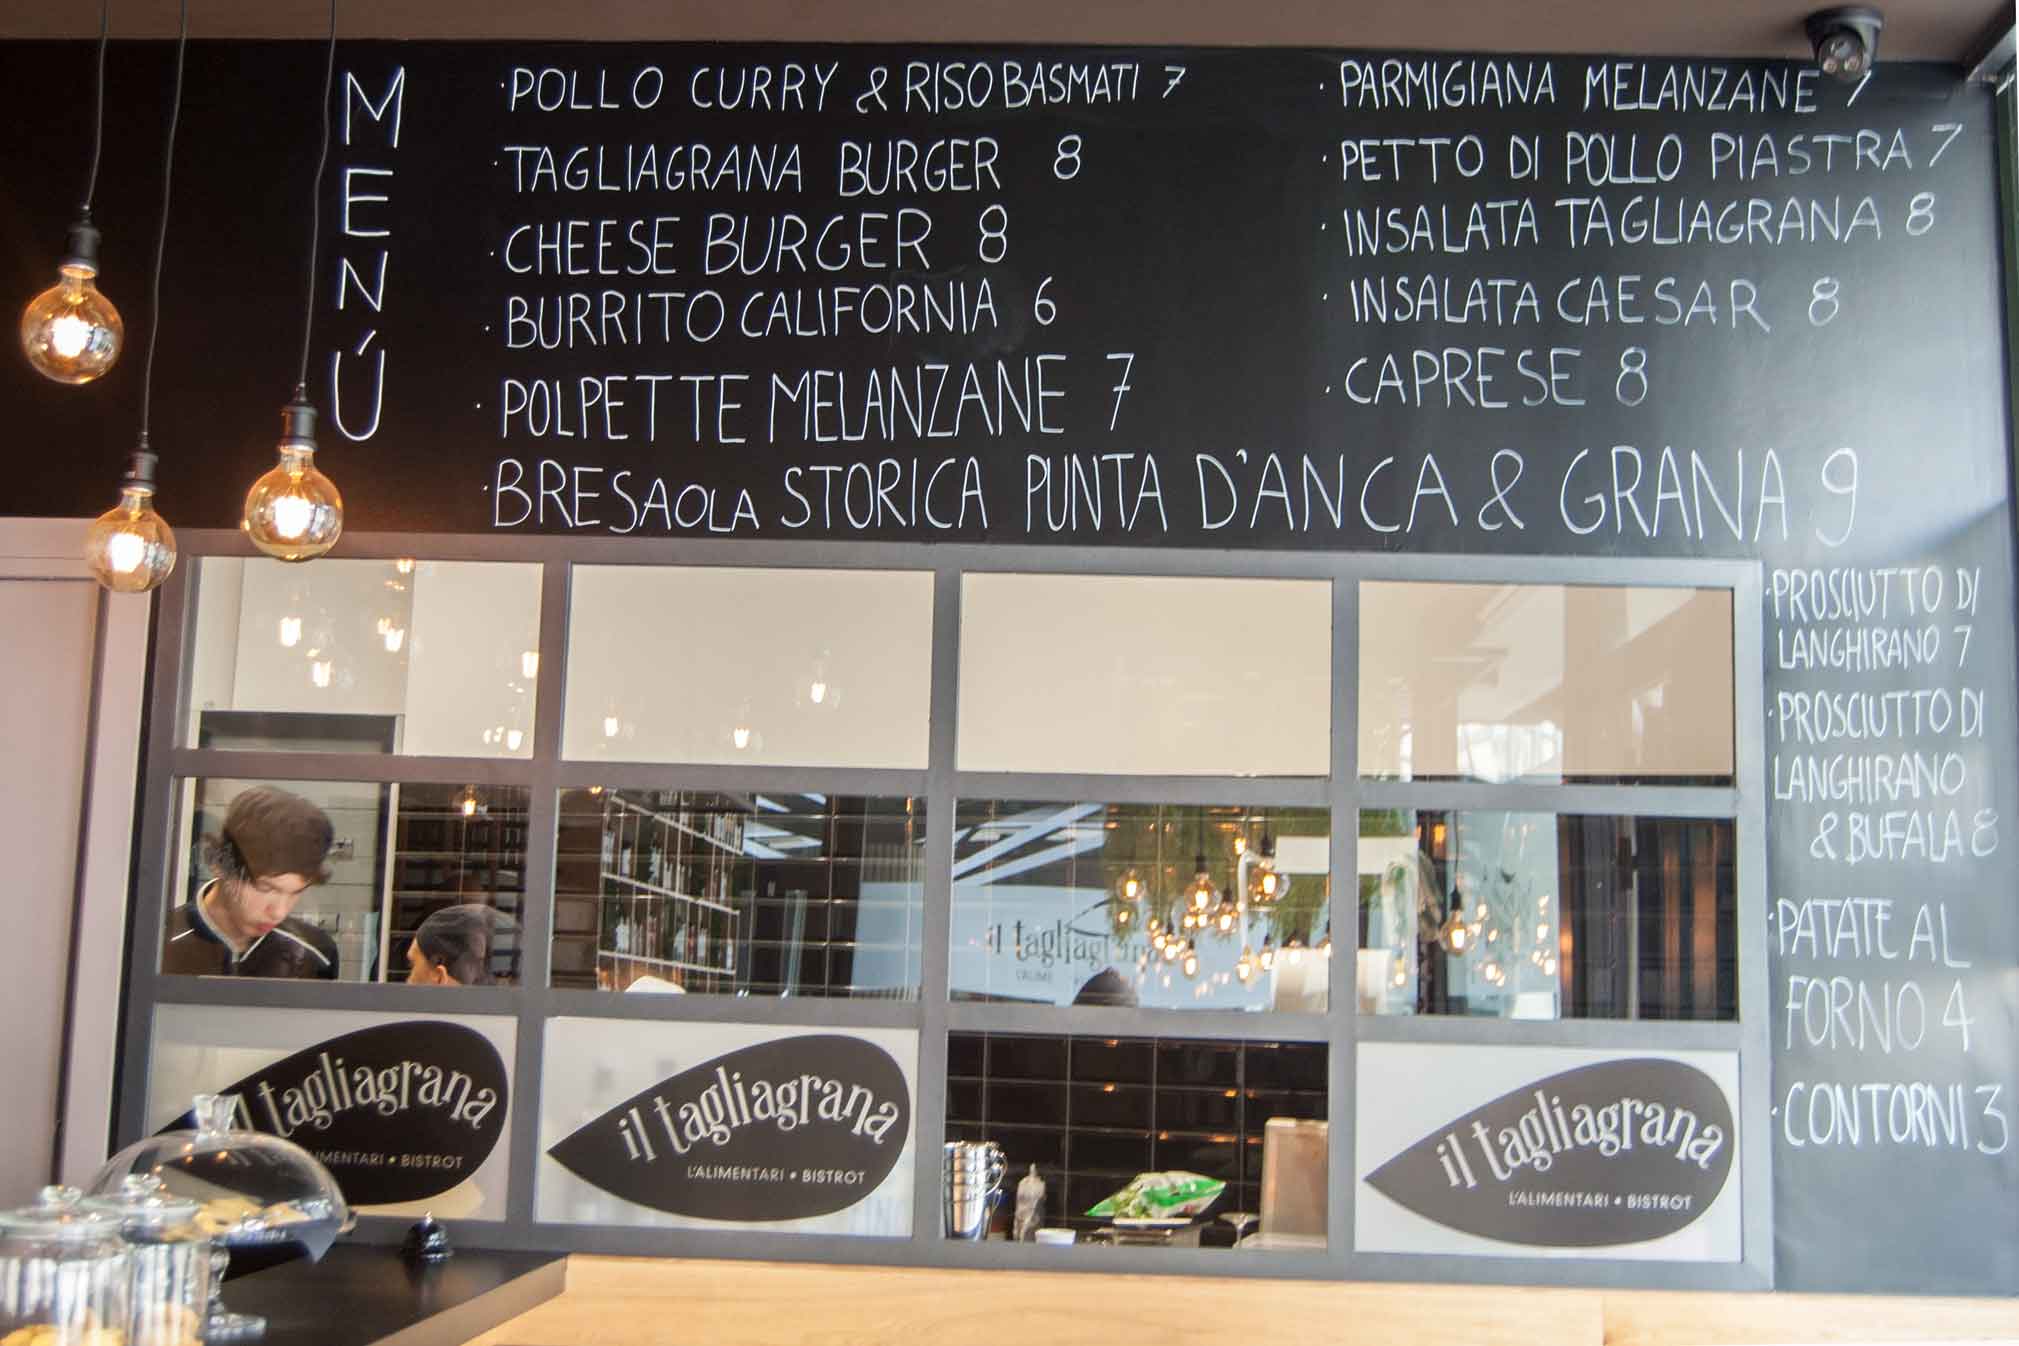 MENÚ
·POLLO CURRY & RISO BASMATI 7
·TAGLIAGRANA BURGER 8
·CHEESE BURGER 8
·BURRITO CALIFORNIA 6
·POLPETTE MELANZANE 7
·BRESAOLA STORICA PUNTA D'ANCA & GRANA 9
·PARMIGIANA MELANZANE 7
·PETTO DI POLLO PIASTRA 7
·INSALATA TAGLIAGRANA 8
·INSALATA CAESAR 8
·CAPRESE 8
·PROSCIUTTO DI
LANGHIRANO 7
·PROSCIUTTO DI
LANGHIRANO
& BUFALA 8
·PATATE AL
FORNO 4
·CONTORNI 3
il tagliagrana
il tagliagrana
BISTROT
il tagliagrana
L'ALIMENTARI • BISTROT
il tagliagrana
L'ALIMENTARI • BISTROT